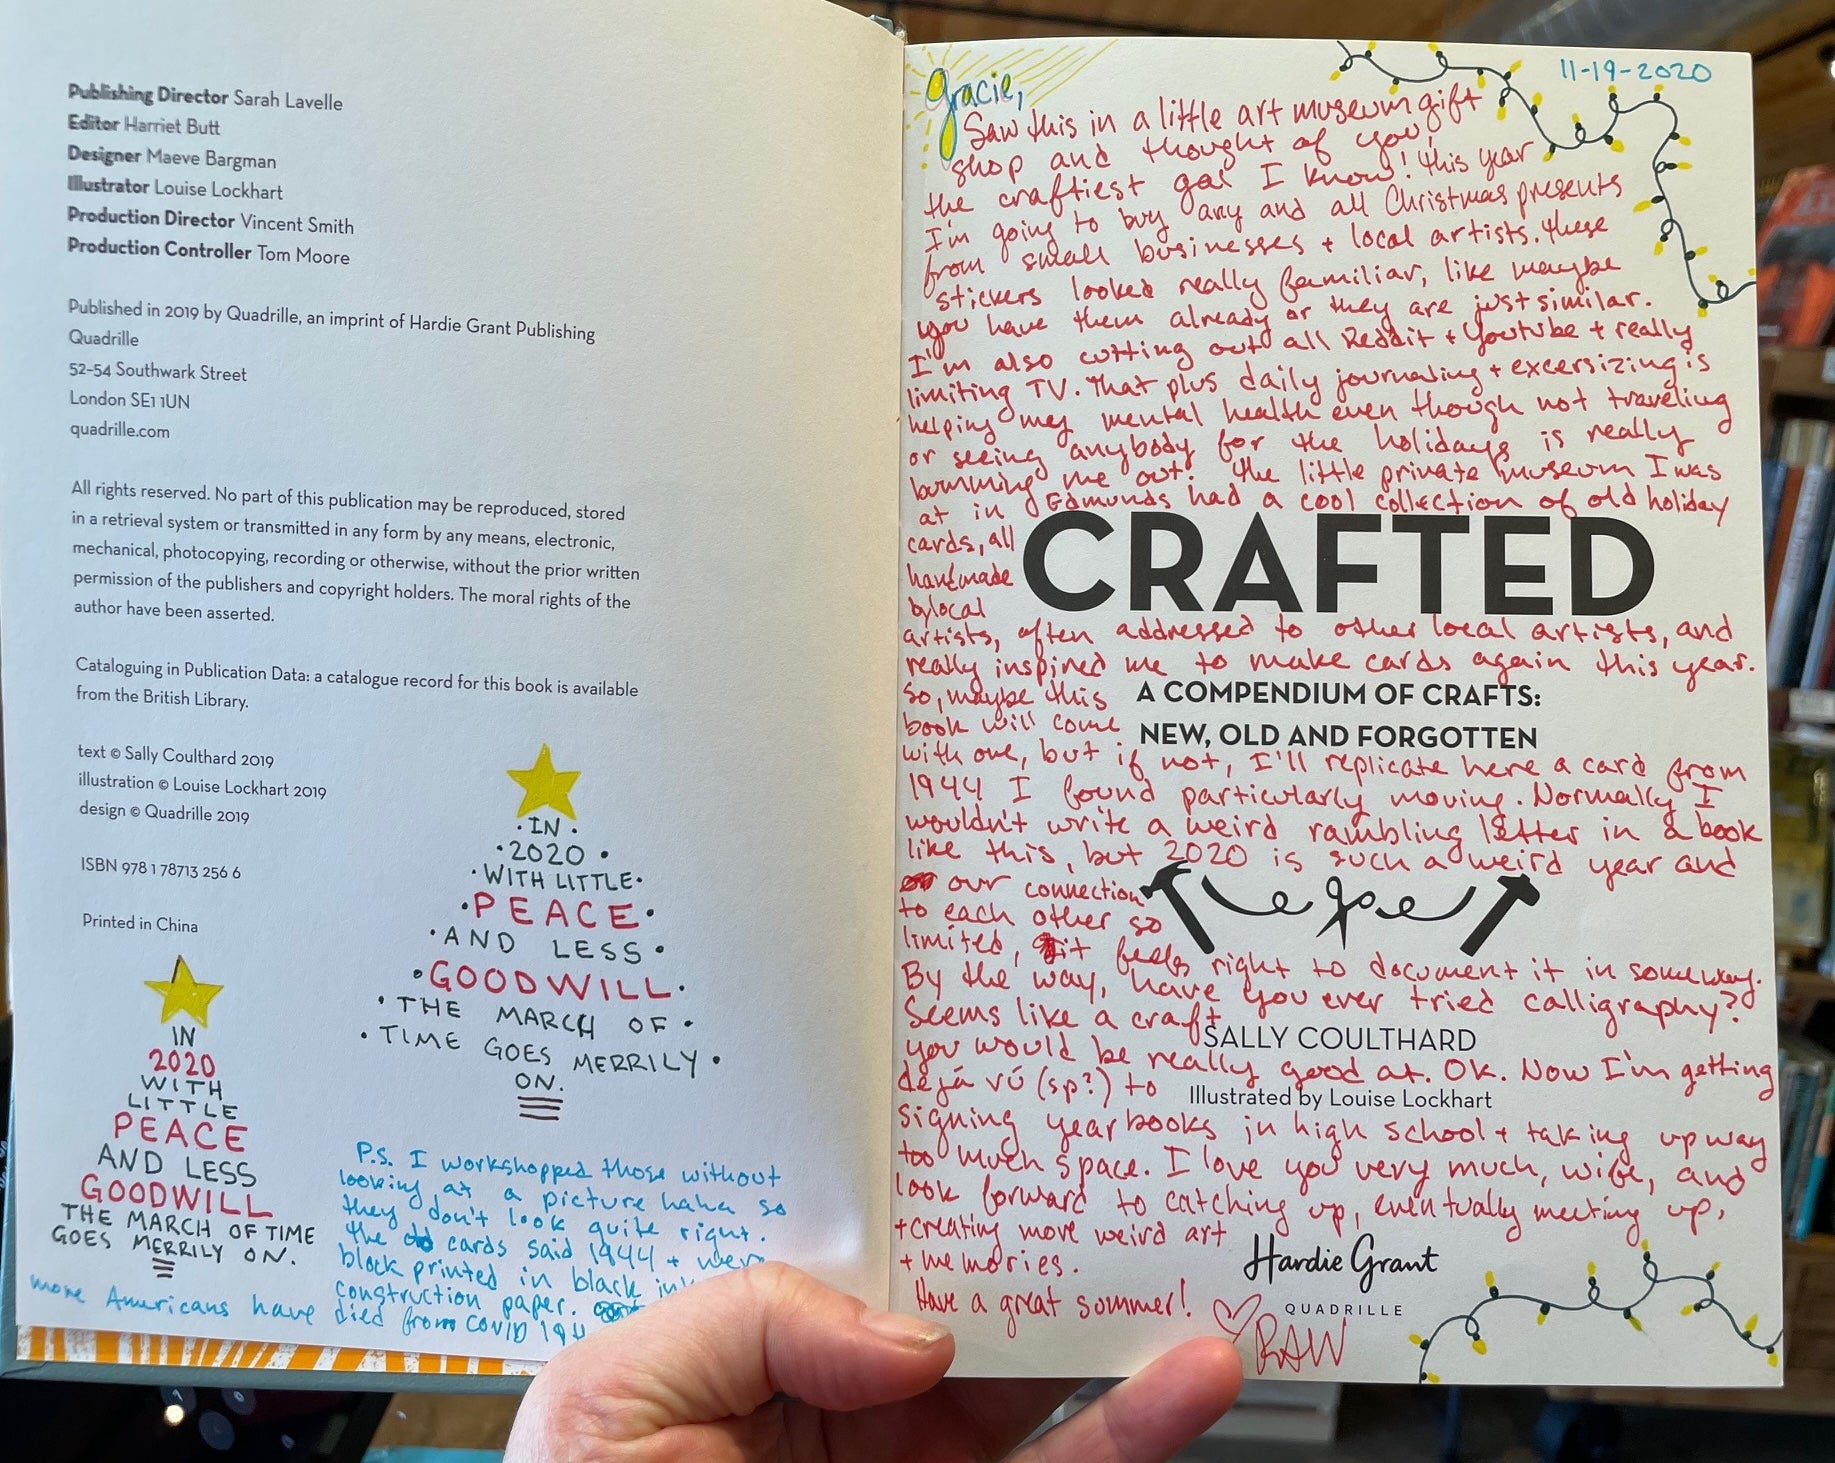 Publishing Director Sarah Lavelle
Editor Harriet Butt
Designer Maeve Bargman
Illustrator Louise Lockhart
Production Director Vincent Smith
Production Controller Tom Moore
Published in 2019 by Quadrille, an imprint of Hardie Grant Publishing
Quadrille
52–54 Southwark Street
London SE1 1UN
quadrille.com
All rights reserved. No part of this publication may be reproduced, stored
in a retrieval system or transmitted in any form by any means, electronic,
mechanical, photocopying, recording or otherwise, without the prior written
permission of the publishers and copyright holders. The moral rights of the
author have been asserted.
Cataloguing in Publication Data: a catalogue record for this book is available
from the British Library.
text © Sally Coulthard 2019
illustration © Louise Lockhart 2019
design © Quadrille 2019
ISBN 978 1 78713 256 6
Printed in China
IN
2020
WITH
LITTLE
PEACE
AND LESS
GOODWILL
THE MARCH OF TIME
GOES MERRILY ON.
·IN·
·2020·
·WITH LITTLE·
·PEACE·
·AND LESS·
·GOODWILL·
·THE MARCH OF·
·TIME GOES MERRILY·
ON.
P.S. I workshopped those without
looking at a picture haha so
they don't look quite right.
the old cards said 1944 + were
block printed in black ink
construction paper.
more Americans have died from COVID
11-19-2020
Gracie,
Saw this in a little art museum gift
shop and thought of you,
the craftiest gal I know! This year
I'm going to buy any and all Christmas presents
from small businesses + local artists. These
stickers looked really familiar, like maybe
you have them already or they are just similar.
I'm also cutting out all Reddit + Youtube + really
limiting TV. That plus daily journaling + excersizing is
helping my mental health even though not traveling
or seeing anybody for the holidays is really
bumming me out. The little private museum I was
at in Edmunds had a cool collection of old holiday
cards, all
handmade
by local
CRAFTED
artists, often addressed to other local artists, and
really inspired me to make cards again this year.
So, maybe this
book will come
A COMPENDIUM OF CRAFTS:
NEW, OLD AND FORGOTTEN
with one, but if not, I'll replicate here a card from
1944 I found particularly moving. Normally I
wouldn't write a weird rambling letter in a book
like this, but 2020 is such a weird year and
our connection
to each other so
limited, it feels right to document it in some way.
By the way, have you ever tried calligraphy?
Seems like a craft
SALLY COULTHARD
you would be really good at. Ok. Now I'm getting
déjá vú (sp?) to
Illustrated by Louise Lockhart
signing yearbooks in high school + taking up way
too much space. I love you very much, wife, and
look forward to catching up, eventually meeting up,
+ creating more weird art
+ memories.
Hardie Grant
QUADRILLE
Have a great summer!
RAW